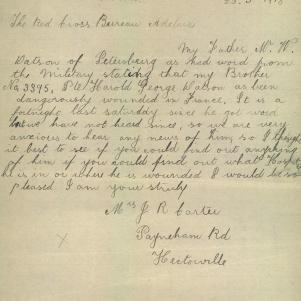 23.5.1918
The Red Cross Bureau Adelaide
My Father Mr. W.
Watson of Petersburg as had word from
the Military stating that my Brother
No 3395, Pte Harold George Watson as been
dangerously wounded in France. It is a
fortnight last saturday since he got word
have not heard since, so we are very
anxious to hear any news of him, so I thought
it best to see if you could find out anything
of him if you could find out what Hosp
he is in or where he is wounded I would be so
pleased I am yours truly
Mrs J R Carter
Payneham Rd
Hectorville
X